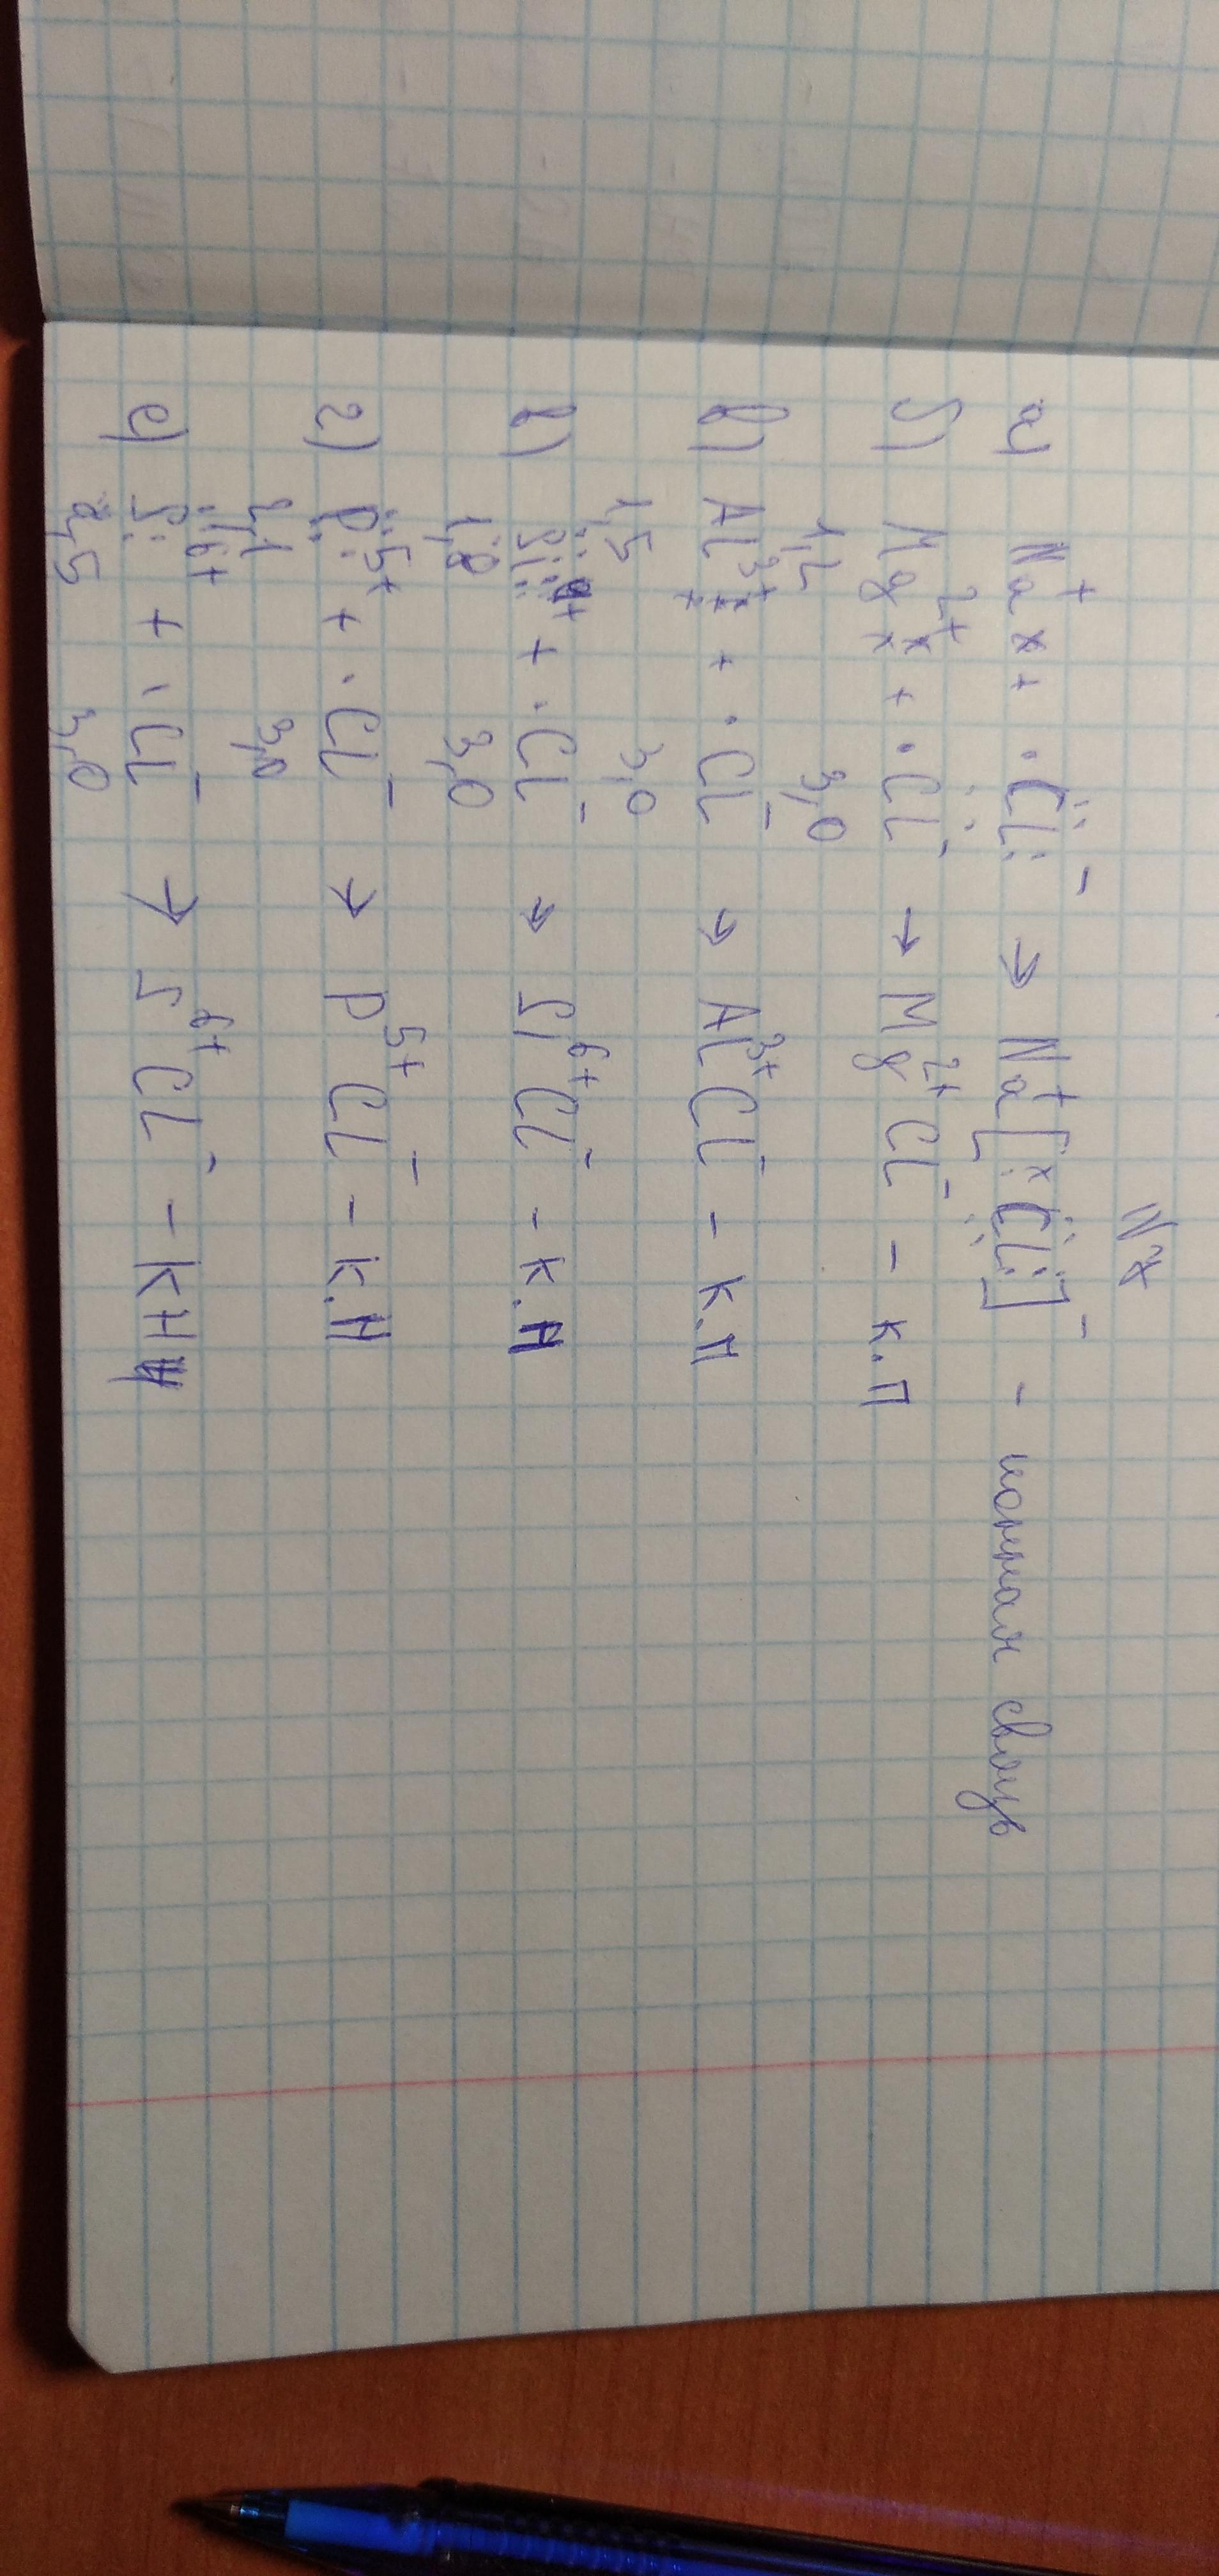 N7
а) Na⁺ × + ·Cl:⁻ → Na⁺[:×Cl:]⁻ - ионная связь
б) Mg²⁺ ×× + ·Cl⁻ → Mg²⁺Cl⁻ - к.п
1,2 3,0
в) Al³⁺ ××× + ·Cl⁻ → Al³⁺Cl⁻ - к.п
1,5 3,0
в) Si + ·Cl⁻ → Si⁶⁺Cl⁻ - к.н
1,8 3,0
г) P⁵⁺ + ·Cl⁻ → P⁵⁺Cl⁻ - к.н
2,1 3,0
е) S⁶⁺ + ·Cl⁻ → S⁶⁺Cl⁻ - кн
2,5 3,0